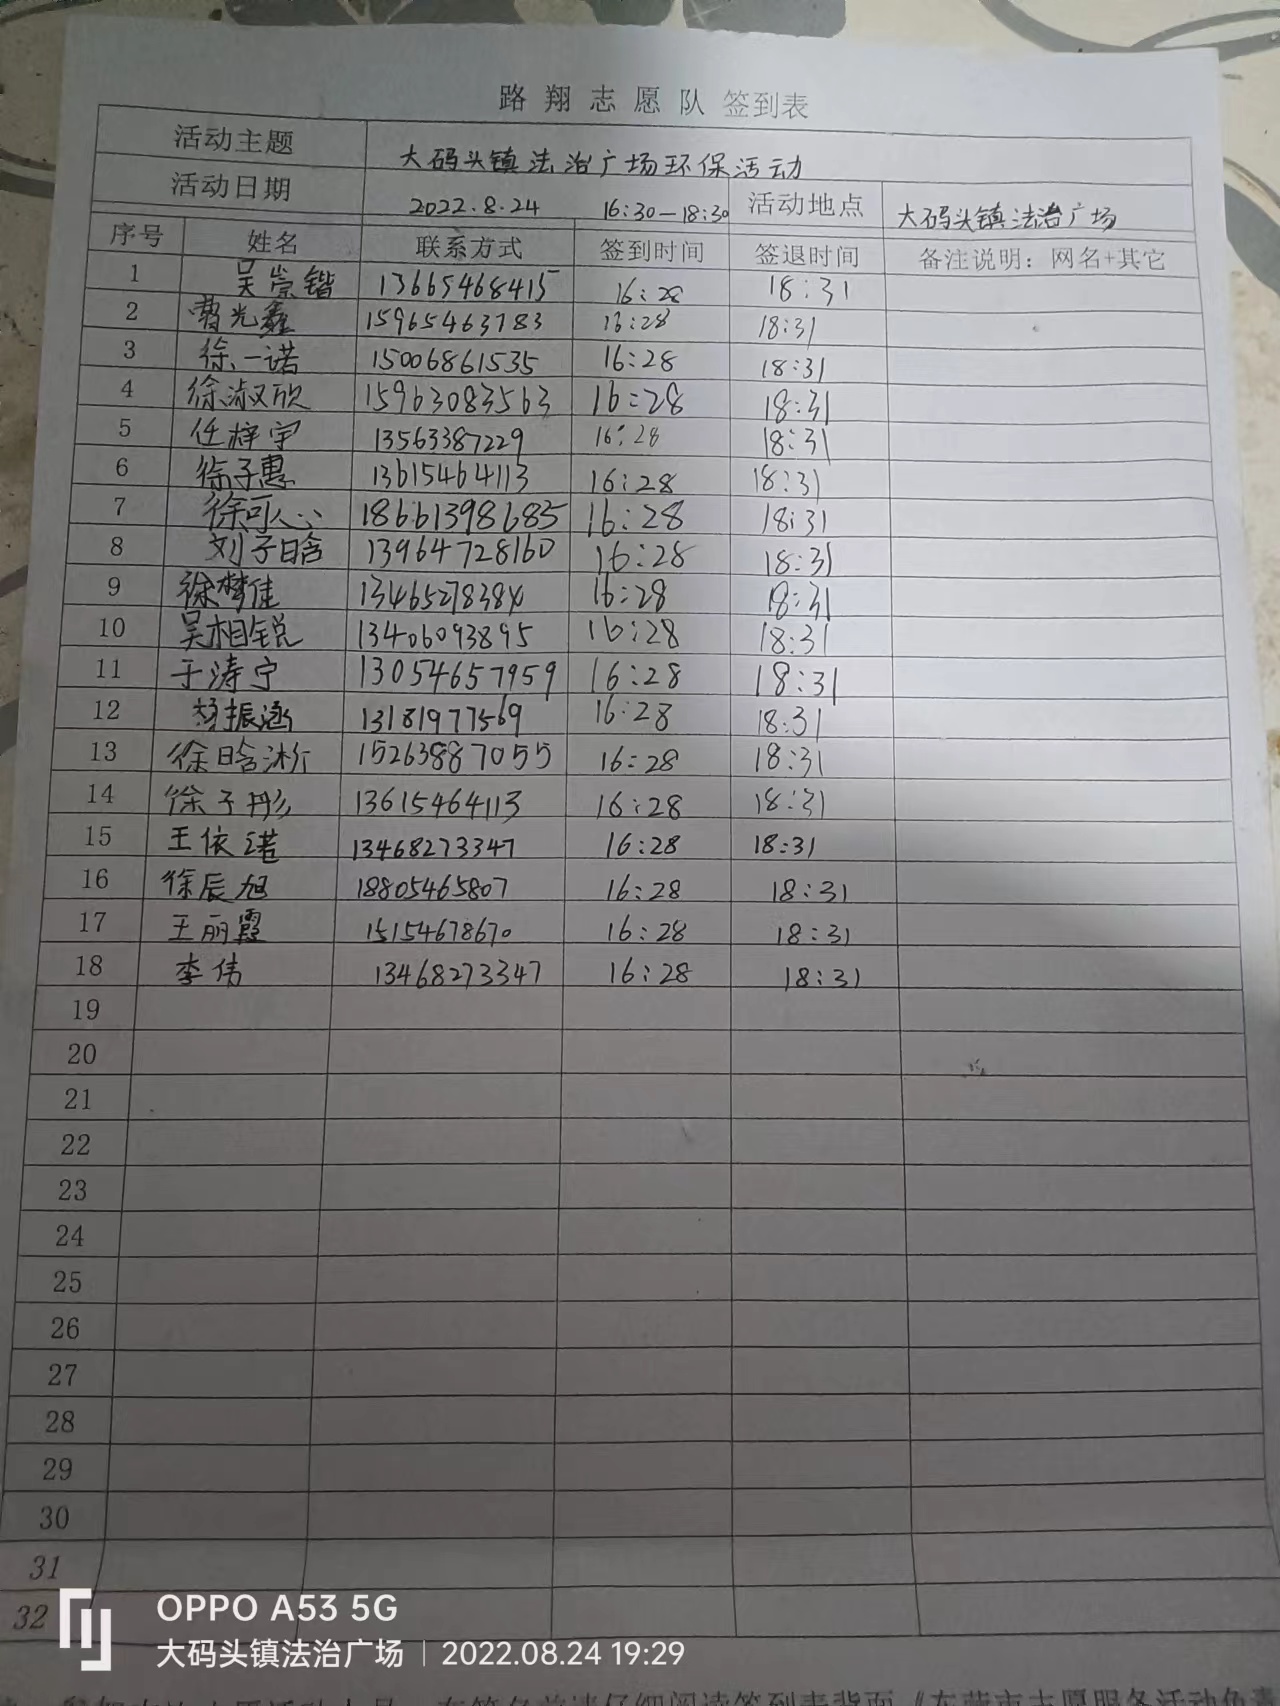 路翔志愿队 签到表
活动主题 大码头镇法治广场环保活动
活动日期 2022.8.24 16:30—18:30 活动地点 大码头镇法治广场
序号 姓名 联系方式 签到时间 签退时间 备注说明：网名+其它
1 吴崇锴 13665468415 16:28 18:31
2 曹光鑫 15965463783 16:28 18:31
3 徐一诺 15006861535 16:28 18:31
4 徐淑欣 15963083563 16:28 18:31
5 任梓宇 13563387229 16:28 18:31
6 徐子惠 13615464113 16:28 18:31
7 徐可人心 18661398685 16:28 18:31
8 刘子晗 13964728160 16:28 18:31
9 徐梦佳 16:28 18:31
10 吴相锐 13406093895 16:28 18:31
11 于涛宁 13054657959 16:28 18:31
12 振涵 13181977569 16:28 18:31
13 徐晗淅 15263887055 16:28 18:31
14 徐子彤 13615464113 16:28 18:31
15 王依诺 13468273347 16:28 18:31
16 徐辰旭 18805465807 16:28 18:31
17 王丽霞 15154678670 16:28 18:31
18 李伟 13468273347 16:28 18:31
19
20
21
22
23
24
25
26
27
28
29
30
31
32
OPPO A53 5G
大码头镇法治广场 | 2022.08.24 19:29